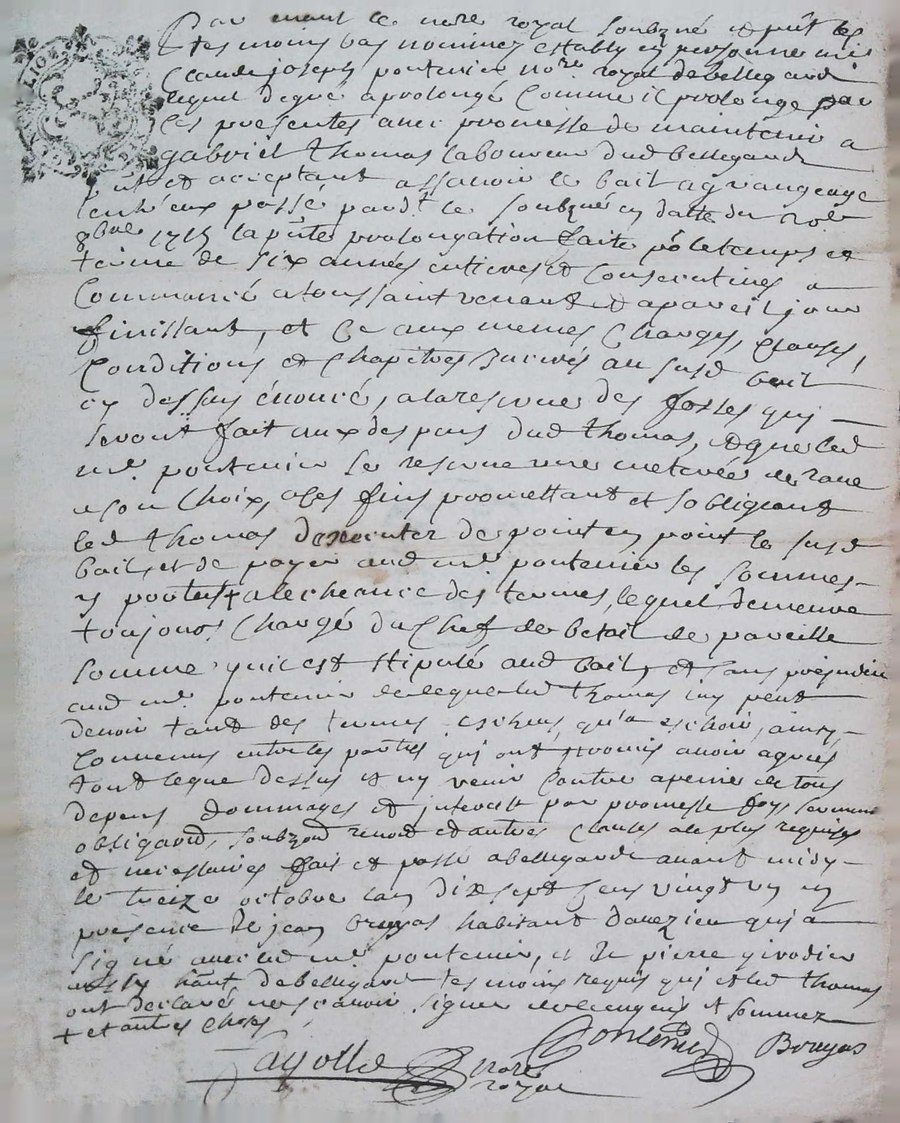 Par devant le no.re royal soubzné et pñt les
tesmoins bas nommez estably en personne mre
Claude joseph pontenier no.re royal de bellegarde
lequel de gré a prolongé comme il prolonge par
ces presentes avec promesse de maintenir a
gabriel thomas laboureur dud bellegarde
pñt et acceptant assavoir le bail a grangeage
entr'eux passé pard.t le soubzné en datte du
8bre 1715 la pñte prolongation faite po.r le temps et
terme de six années entieres et consecutives a
commancé a toussaint venant et a pareil jour
finissant, et ce aux memes charges, clauses,
conditions et chapitres inserés au susd bail
cy dessus énoncé, a la reserve des fosses qui
seront fait aux despens dud thomas, et que led
mre pontenier se reserve une meterée de rave
a son choix, a ces fins promettant et s'obligeant
led thomas dexecuter de point en point le susd
bail, et de payer aud mre pontenier les sommes
y portés + a lecheance des termes, lequel demeure
toujours chargé du chef de betail de pareille
somme qui est stipulé aud bail, et sans prejudice
aud mre pontenier de ce que led thomas luy peut
devoir tant des termes eschus, qu'a eschoir, ainsy
convenus entre les parties qui ont promis avoir agreés
tout ce que dessus et ny venir contre a peine de tous
depens dommages et interests par promesse foy, serment
obligaõn, soubzõn renoõn et autres clauses a ce plus requises
et necessaires fait et passé a bellegarde avant midy
le treize octobre lan dix sept cens vingt un en
presence de jean bruyas habitant davezieu qui a
signé avec led mre pontenier, et de pierre girodier
aussy hãnt de bellegarde tesmoins requis qui et led thomas
ont declaré ne scavoir signer de ce enquis et sommez
+ et autres choses
Pontenier Bruyas
Fayolle no.re
royal